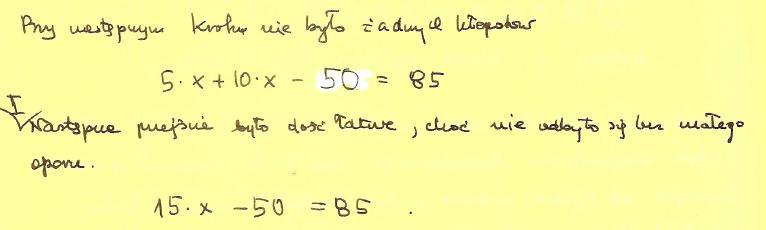 Przy następnym kroku nie było żadnych kłopotów
5 · x + 10 · x - 50 = 85
I
Następne przejście było dość łatwe, choć nie odbyło się bez małego
oporu.
15 · x - 50 = 85 .